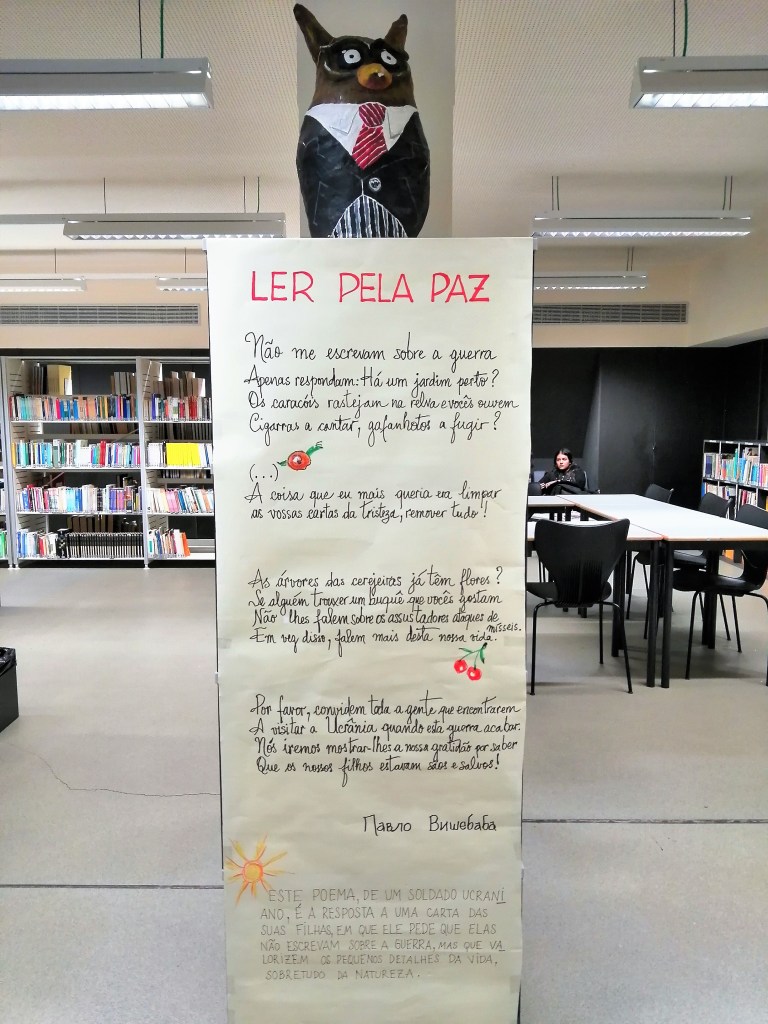 LER PELA PAZ
Não me escrevam sobre a guerra
Apenas respondam: Há um jardim perto?
Os caracóis rastejam na relva e vocês ouvem
Cigarras a cantar, gafanhotos a fugir?
(...)
A coisa que eu mais queria era limpar
as vossas cartas da tristeza, remover tudo!
As árvores das cerejeiras já têm flores?
Se alguém trouxer um buquê que vocês gostam
Não lhes falem sobre os assustadores ataques de
mísseis.
Em vez disso, falem mais desta nossa vida.
Por favor, convidem toda a gente que encontrarem
A visitar a Ucrânia quando esta guerra acabar.
Nós iremos mostrar-lhes a nossa gratidão por saber
Que os nossos filhos estavam sãos e salvos!
Павло Вишебаба
ESTE POEMA, DE UM SOLDADO UCRANI
ANO, É A RESPOSTA A UMA CARTA DAS
SUAS FILHAS, EM QUE ELE PEDE QUE ELAS
NÃO ESCREVAM SOBRE A GUERRA, MAS QUE VA
LORIZEM OS PEQUENOS DETALHES DA VIDA,
SOBRETUDO DA NATUREZA.